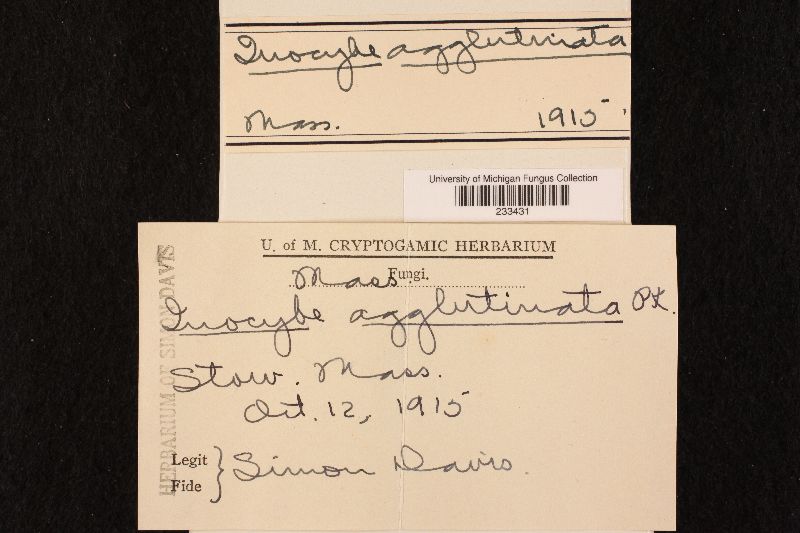 Inocybe agglutinata
Mass. 1915
University of Michigan Fungus Collection
233431
U. of M. CRYPTOGAMIC HERBARIUM
Fungi.
Mass
Inocybe agglutinata Pk.
Stow. Mass.
Oct. 12, 1915
Legit
Fide
Simon Davis.
HERBARIUM OF SIMON DAVIS